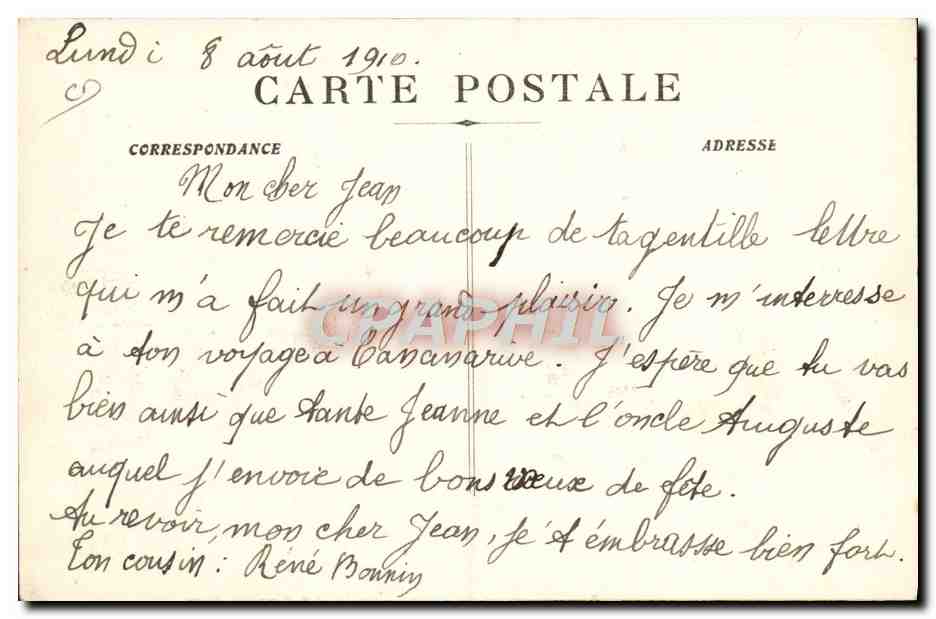 Lundi 8 août 1910.
CARTE POSTALE
CORRESPONDANCE
ADRESSE
Mon cher Jean
Je te remercie beaucoup de ta gentille lettre
qui m'a fait un grand plaisir. Je m'interresse
à ton voyage à Tananarive. J'espère que tu vas
bien ainsi que tante Jeanne et l'oncle Auguste
auquel j'envoie de bons vœux de fête.
Au revoir, mon cher Jean, je t'embrasse bien fort.
Ton cousin : Réné Bonnin
CRAPHIL